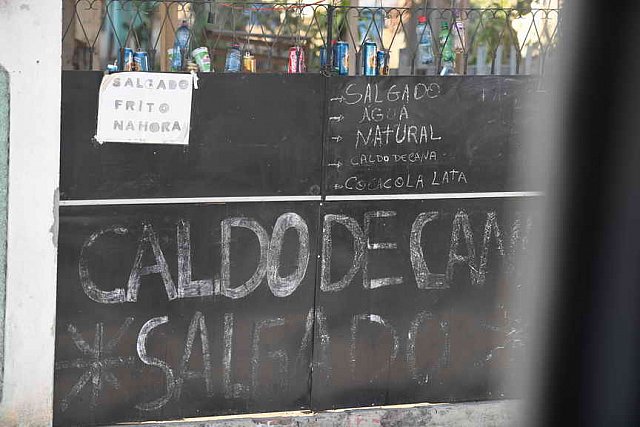 SALGADO
FRITO
NAHORA
→SALGADO
→ AGUA
→ NATURAL
→ CALDO DE CANA
→ COCACOLA LATA
CALDO DE CAN
* SALGADO *